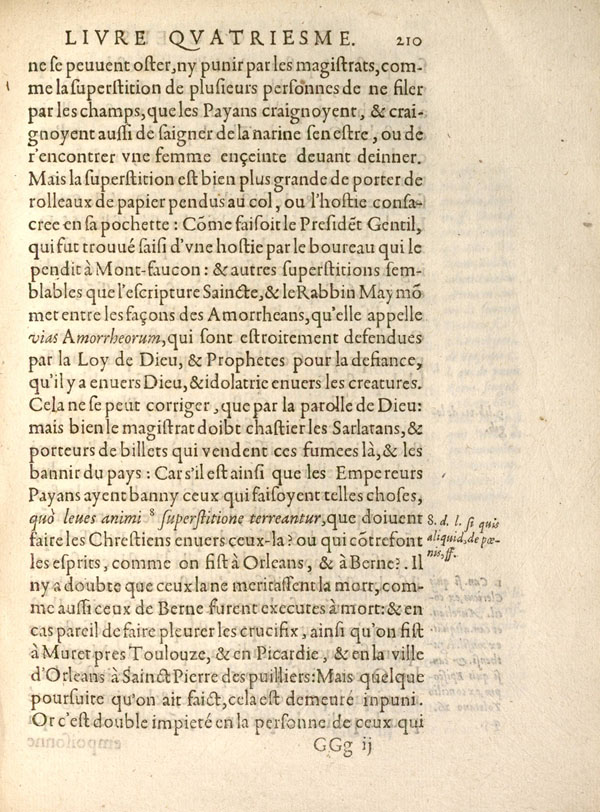 LIVRE QVATRIESME. 210
ne se peuuent oster, ny punir par les magistrats, com-
me la superstition de plusieurs personnes de ne filer
par les champs, que les Payans craignoyent, & crai-
gnoyent aussi de saigner de la narine senestre, ou de
r'encontrer vne femme ençeinte deuant deinner.
Mais la superstition est bien plus grande de porter de
rolleaux de papier pendus au col, ou l'hostie consa-
cree en sa pochette : Cōme faisoit le Presidēt Gentil,
qui fut trouué saisi d'vne hostie par le boureau qui le
pendit à Mont-faucon : & autres superstitions sem-
blables que l'escripture Saincte, & le Rabbin Maymō
met entre les façons des Amorrheans, qu'elle appelle
vias Amorrheorum, qui sont estroitement defendues
par la Loy de Dieu, & Prophetes pour la defiance,
qu'il y a enuers Dieu, & idolatrie enuers les creatures.
Cela ne se peut corriger, que par la parolle de Dieu:
mais bien le magistrat doibt chastier les Sarlatans, &
porteurs de billets qui vendent ces fumees là, & les
bannir du pays : Car s'il est ainsi que les Empereurs
Payans ayent banny ceux qui faisoyent telles choses,
quò leues animi 8 superstitione terreantur, que doiuent
faire les Chrestiens enuers ceux-la? ou qui cōtrefont
les esprits, comme on fist à Orleans, & à Berne?. Il
ny a doubte que ceux la ne meritassent la mort, com-
me aussi ceux de Berne furent executes à mort: & en
cas pareil de faire pleurer les crucifix, ainsi qu'on fist
à Muret pres Toulouze, & en Picardie, & en la ville
d'Orleans à Sainct Pierre des puilliers: Mais quelque
poursuite qu'on ait faict, cela est demeuré inpuni.
Or c'est double impieté en la personne de ceux qui
GGg ij
8. d. l. si quis
aliquid, de pœ-
nis, ff.